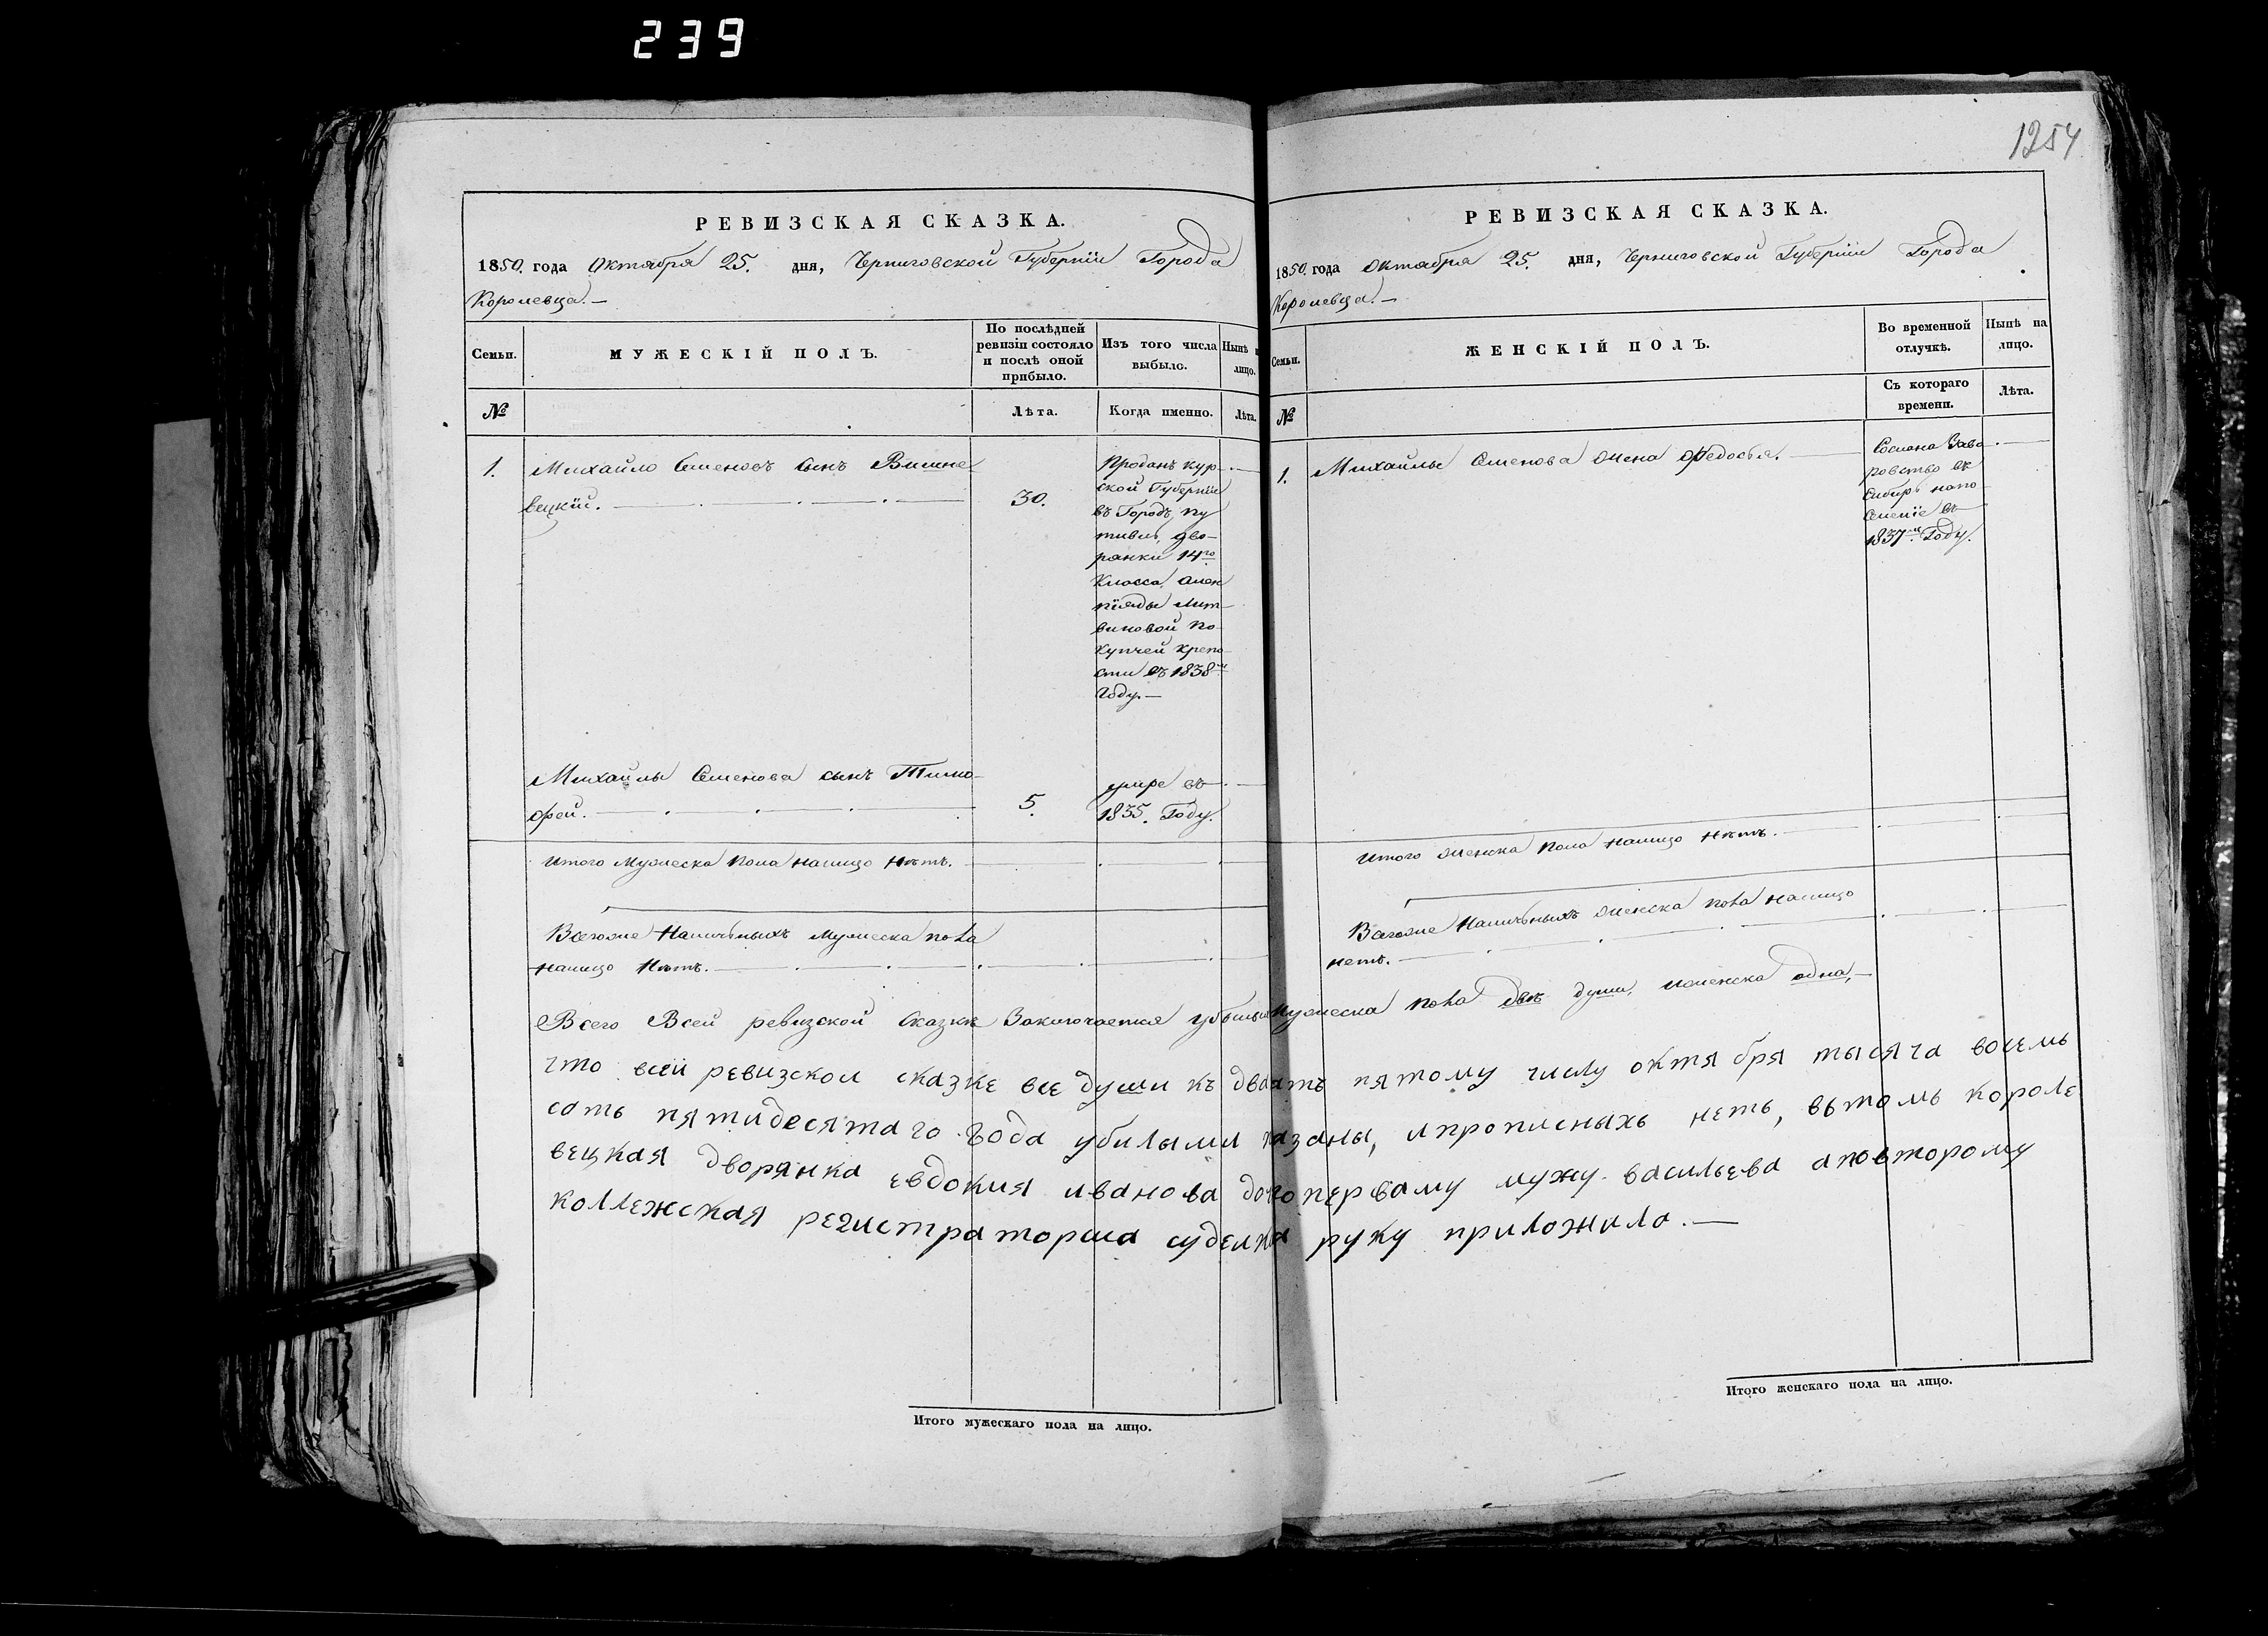 239
1254
РЕВИЗСКАЯ СКАЗКА.
1850. года Октября 25. дня, Черниговской Губернїи Города
Королевца.—
Семьи.
МУЖЕСКІЙ ПОЛЪ.
По послѣдней ревизіи состояло и послѣ оной прибыло.
Изъ того числа выбыло.
Нынѣ лицо.
№
Лѣта.
Когда именно.
Лѣта.
1. Михайло Семеновъ сынъ Вишне
вецкїй.
30.
Проданъ Кур-
ской Губернїи
въ Городъ Пу
тивль, дво-
рянки 14го
Класса
Лит-
виновой по
купчей крепо
сти въ 1838м
Году.—
Михайлы Семенова сынъ Тимо-
фей.
5.
умре въ
1835. Году.
Итого Мужеска пола налицо Нѣтъ.
Всегоже Наличныхъ мужеска пола
налицо Нѣтъ.
РЕВИЗСКАЯ СКАЗКА.
1850. года Октября 25. дня, Черниговской Губернїи Города
Королевца.—
Семьи.
ЖЕНСКІЙ ПОЛЪ.
Во временной отлучкѣ.
Нынѣ на лицо.
№
Съ котораго времени.
Лѣта.
1. Михайлы Семенова жена Федосья.
Сослана Заво
ровство въ
Сибирь напо
селенїе въ
1837м. Году.
Итого женска пола налицо Нѣтъ.
Всегоже Наличныхъ женска пола налицо
нетъ.
Всего Всей ревизской Сказкѣ Заключается убылыи Мужеска пола двѣ души, иженска одна,—
что всеи ревизской сказке все души къ двать пятому числу октября тысяча восемь
сотъ пятидесятаго года убилыми казаны, и прописныхъ нетъ, вътомъ короле
вецкая дворянка евдокия иванова допо первому мужу васильева а повторому
коллежская регистраторша руку приложила.—
Итого мужескаго пола на лицо.
Итого женскаго пола на лицо.